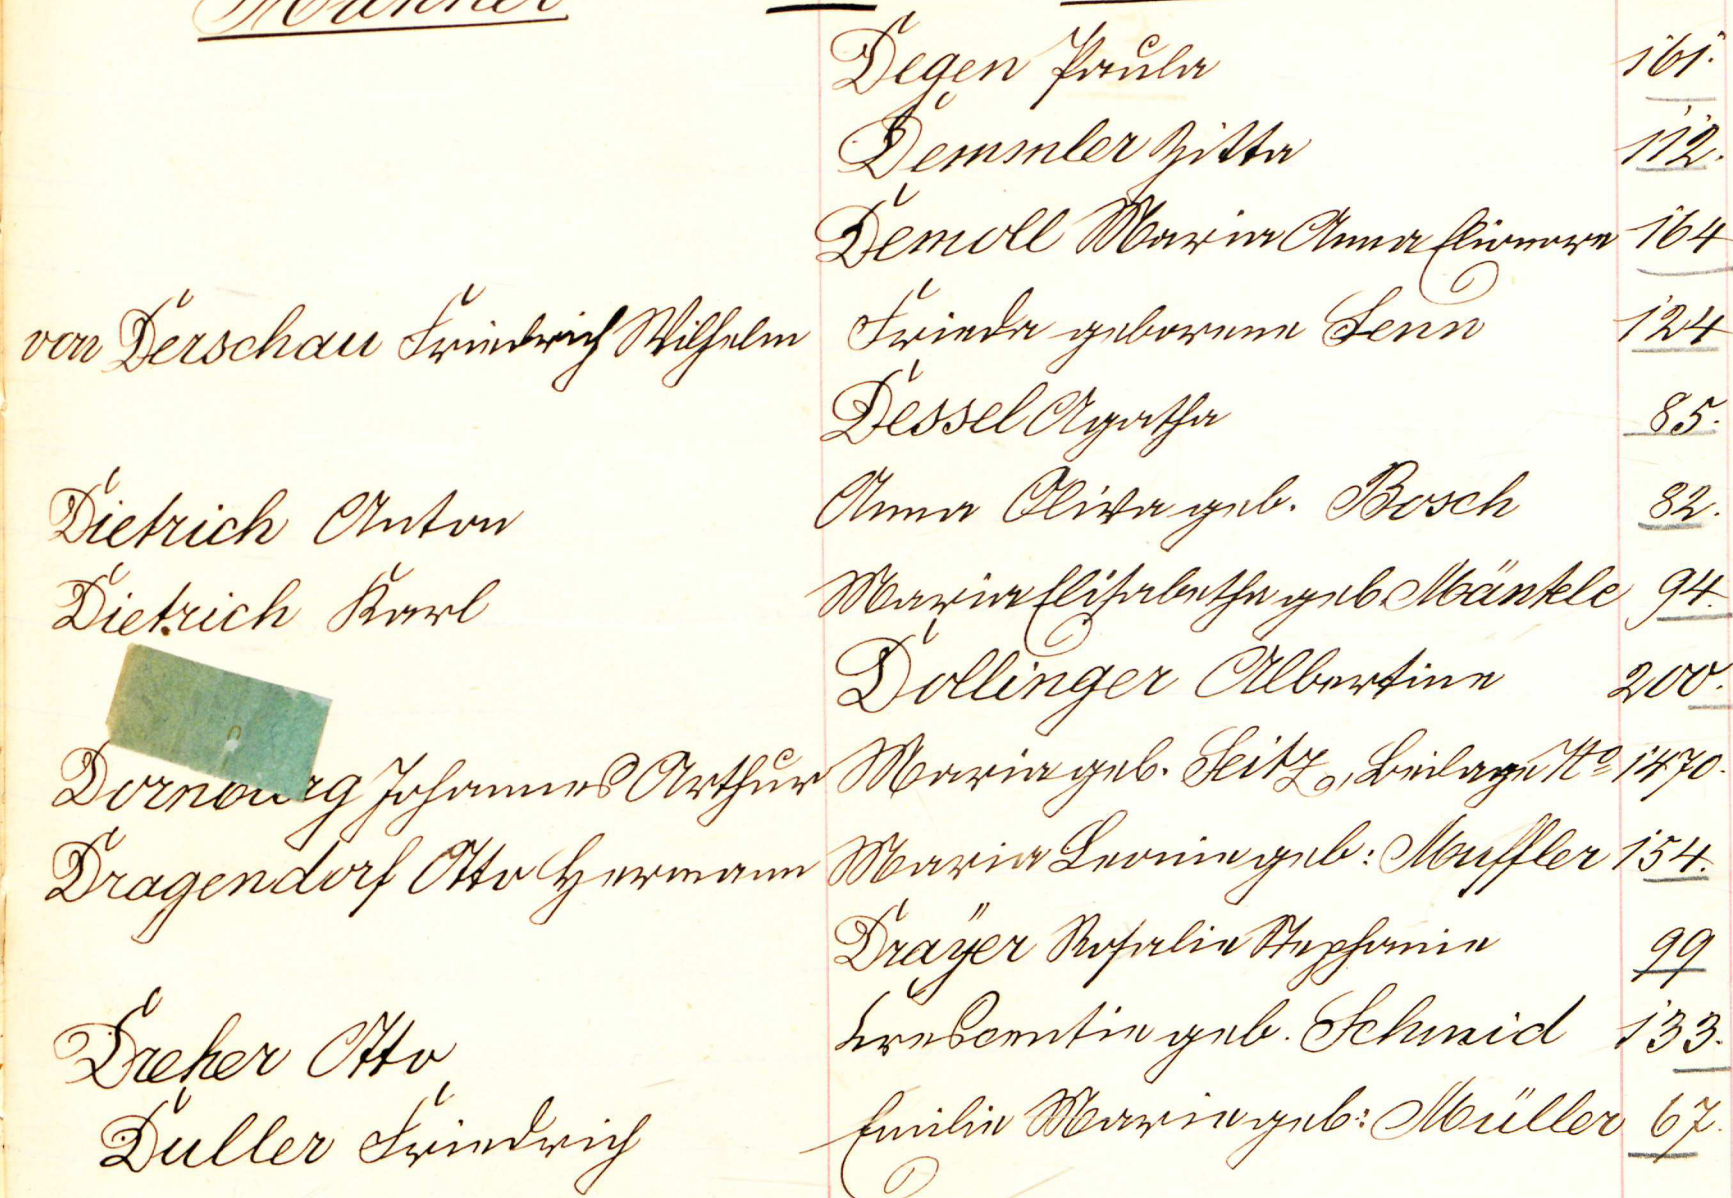 Männer
Degen Paula 161.
Demmler Zitta 112.
Demoll Maria Anna Elionore 164
von Derschau Friedrich Wilhelm Frieda geborene Senn 124
Dessel Agatha 85.
Dietrich Anton Anna Oliva geb. Bosch 82.
Dietrich Karl Maria Elisabetha geb. Mänkle 94.
Dollinger Albertine 200.
Dornburg Johannes Arthur Maria geb. Seitz, Beilage No 1470.
Dragendorf Otto Hermann Maria Leonie geb: Muffler 154.
Drayer Rosalie Stephanie 99
Dreher Otto Crescentia geb. Schmid 133.
Duller Friedrich Emilie Maria geb: Müller 67.